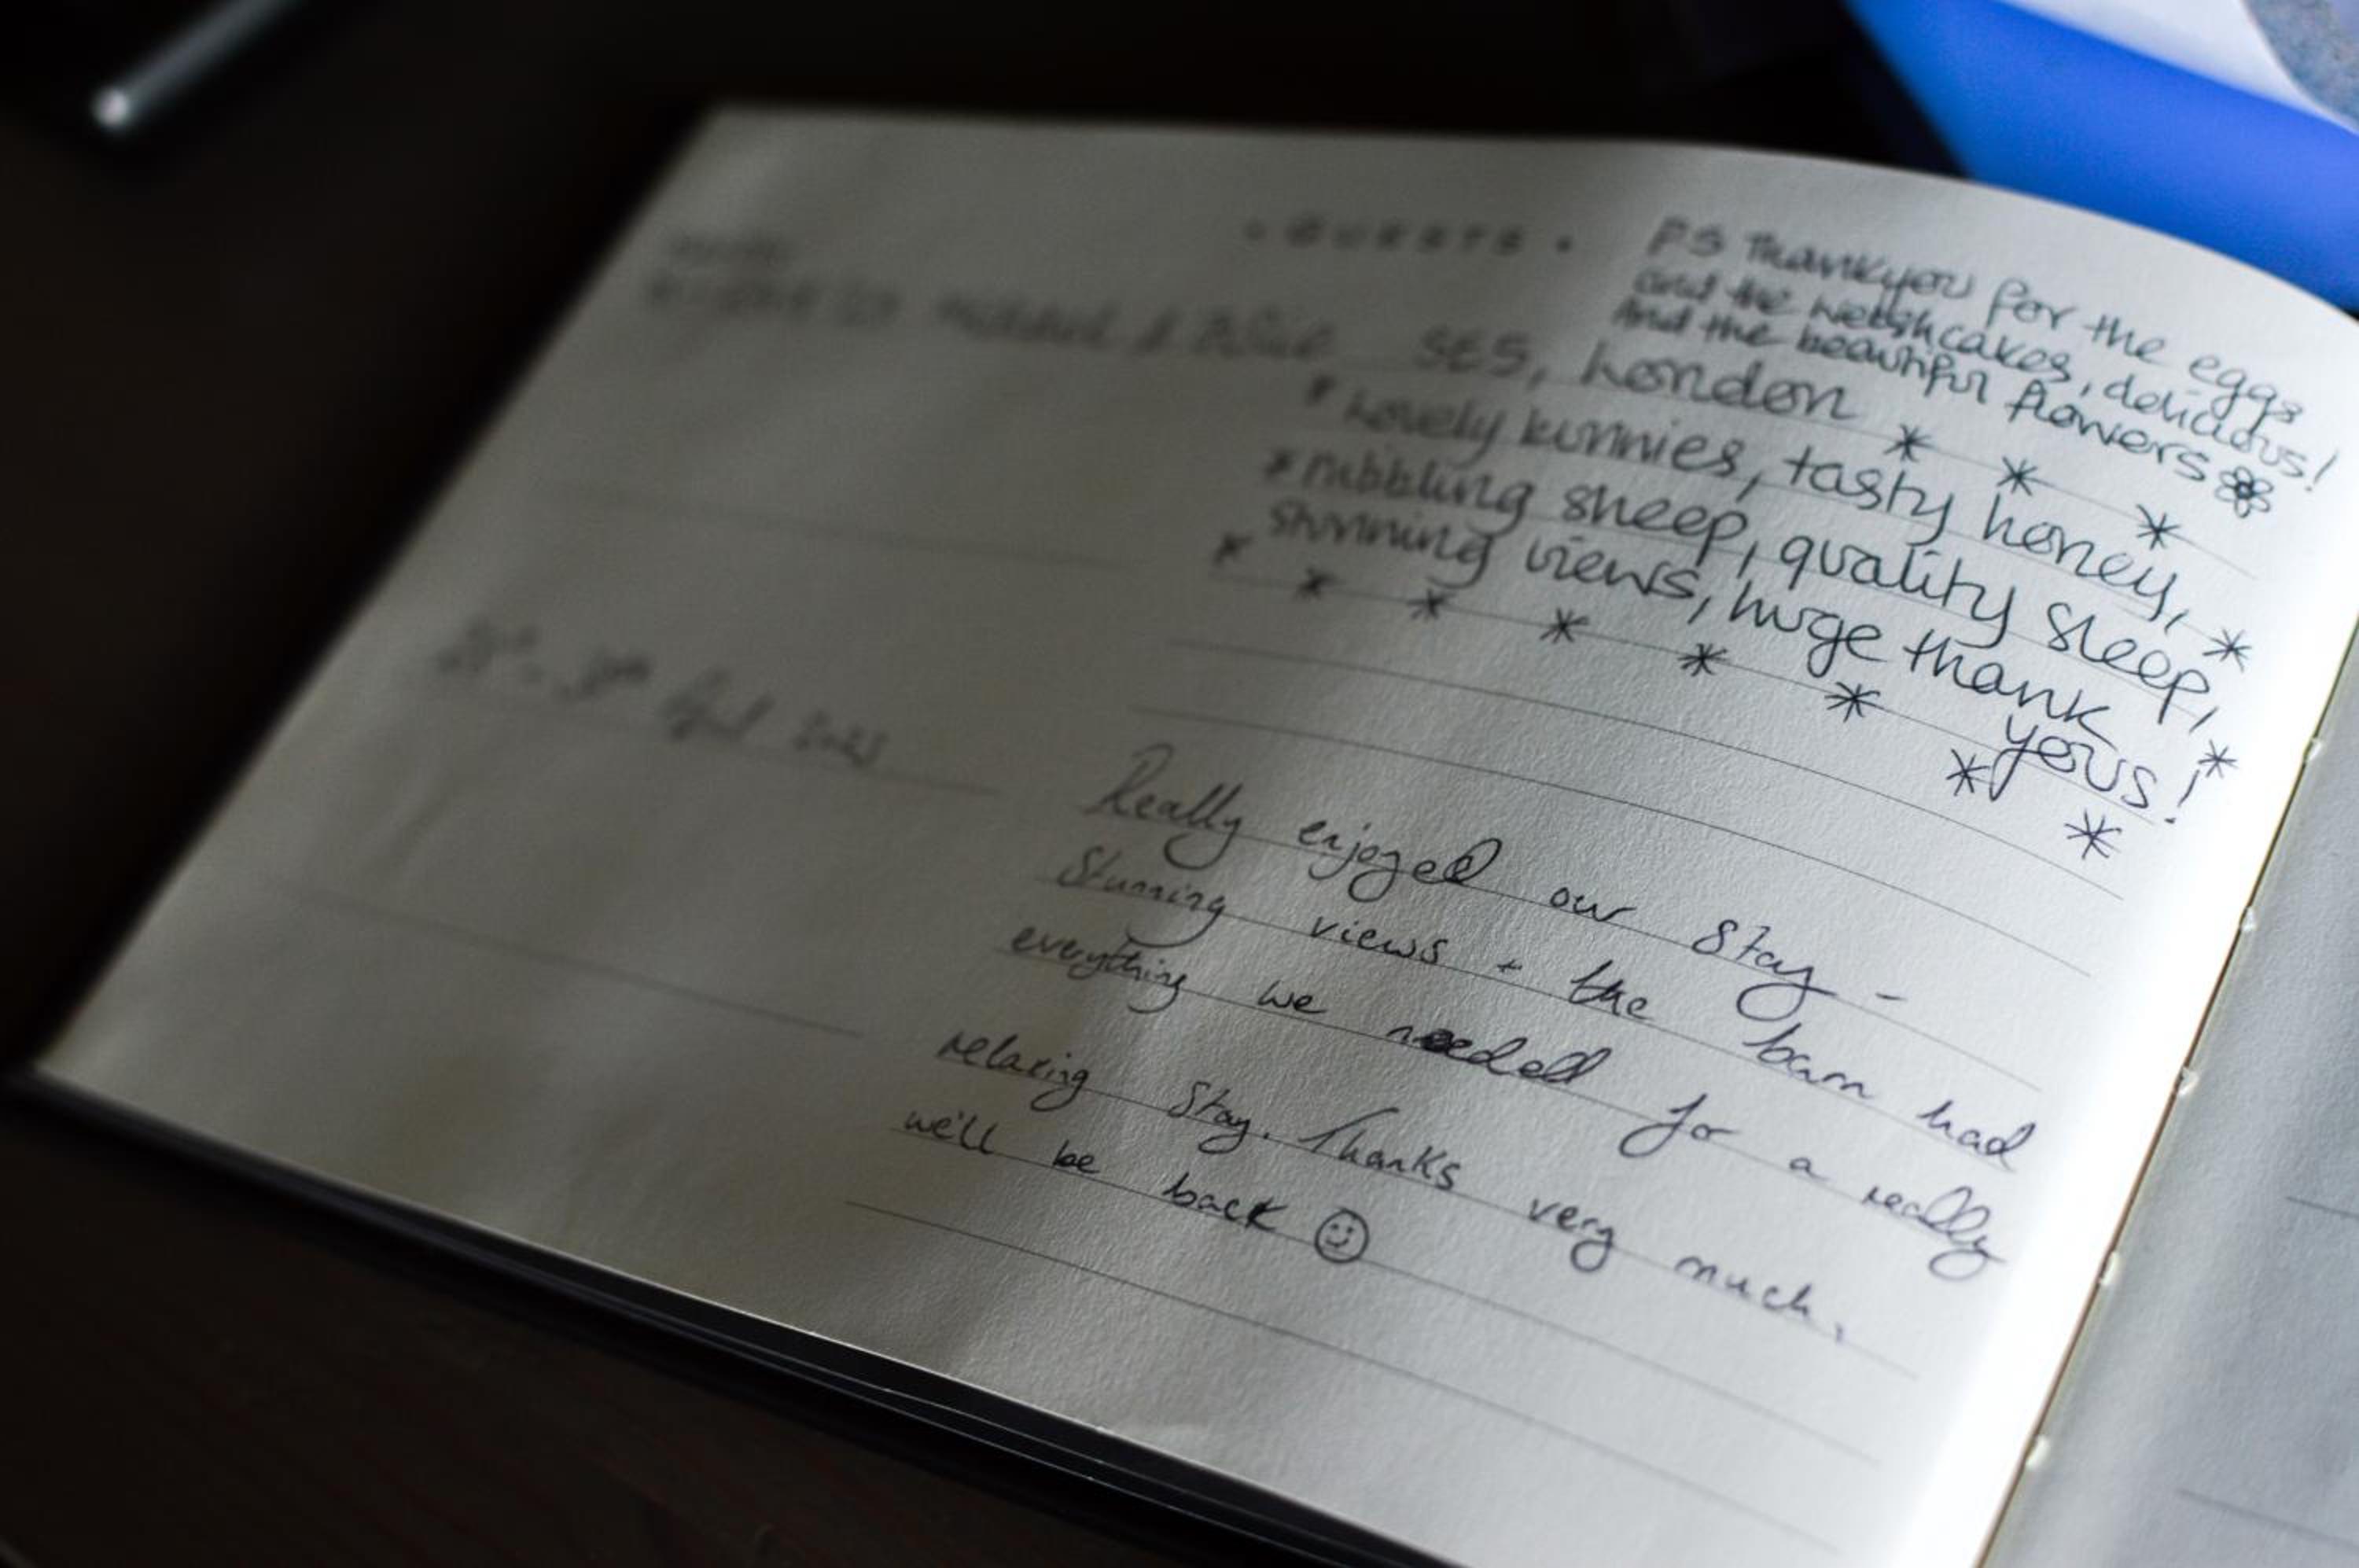 • GUESTS •
PS Thankyou for the eggs
and the welshcakes, delicious!
And the beautiful flowers
SE5, London
Lovely bunnies, tasty honey,
nibbling sheep, quality sleep,
stunning views, huge thank
yous!
April
Really enjoyed our stay -
Stunning views + the barn had
everything we needed for a really
relaxing stay. Thanks very much,
we'll be back ☺